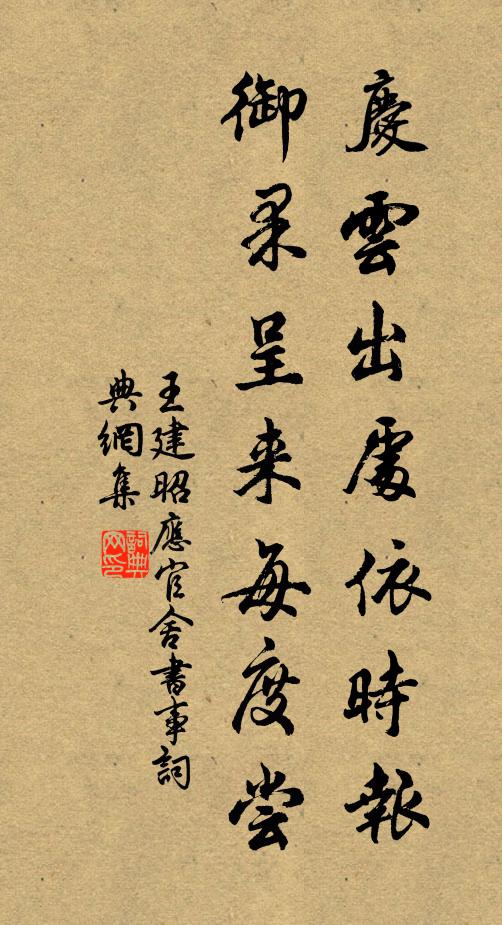 慶雲出處依時報
御果呈來每度嘗
王建昭應官舍書事詞
典網集
詞典網印